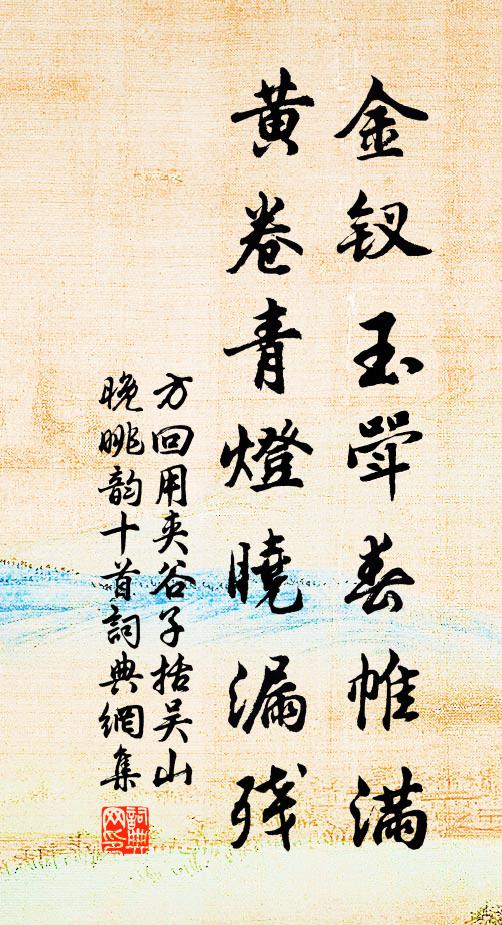 金钗玉斝春帷满
黄卷青燈曉漏残
方回用夹谷子括吴山
晚眺韵十首詞典網集